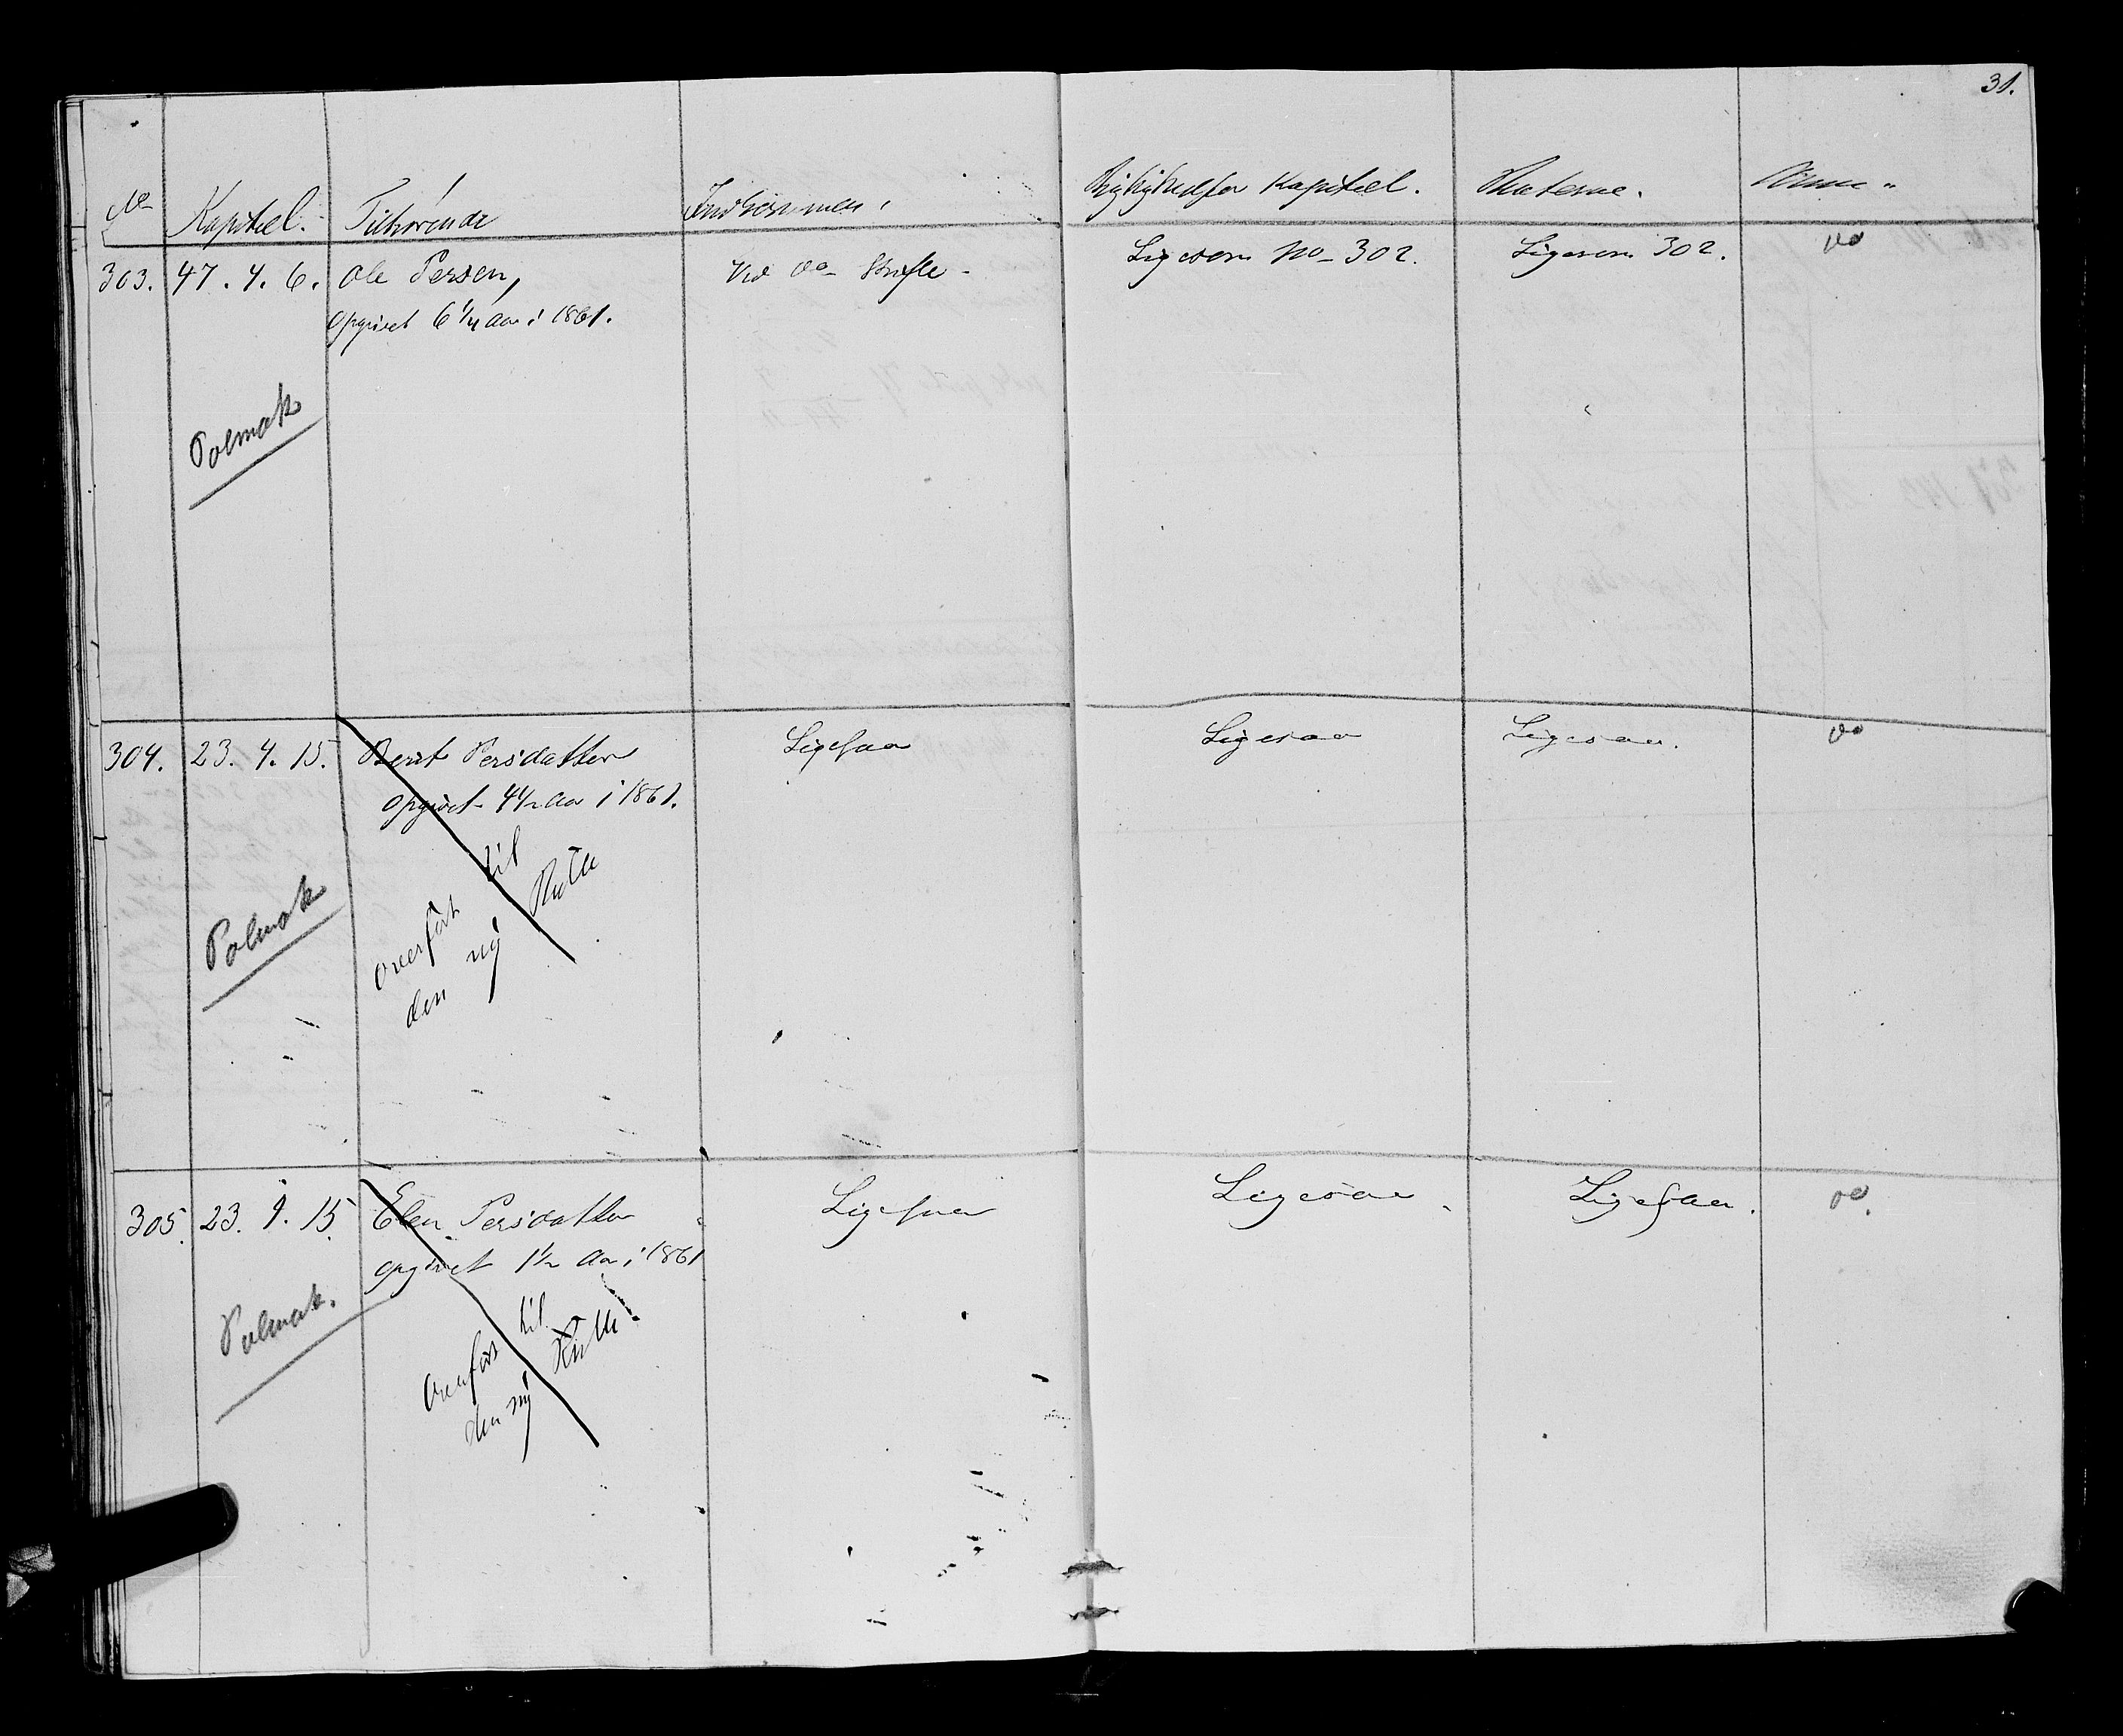 31.
No Kapitel. Tilhørende Indkommen. Kapital. Renterne. Anm.
303. 47. 4. 6. Ole Persen, Vid do Skifte - Ligesom No 302. Ligesom 302. do
opgivet 6 1/4 Aar i 1861.
Polmak
304. 23. 4. 15. Berit Persdatter Ligesaa Ligesaa Ligesaa. do
opgivet 4 1/2 Aar i 1861.
overført til
den ny Rulle
Polmak
305. 23. 4. 15. Elen Persdatter Ligesaa Ligesaa Ligesaa. do.
opgivet 1 1/2 Aar i 1861
Overført til
den ny Rulle
Polmak.